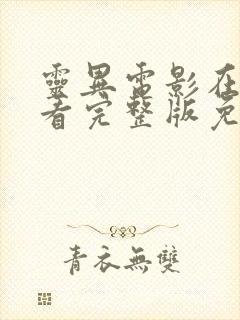 靈異電影在
看完整版免
青衣無雙